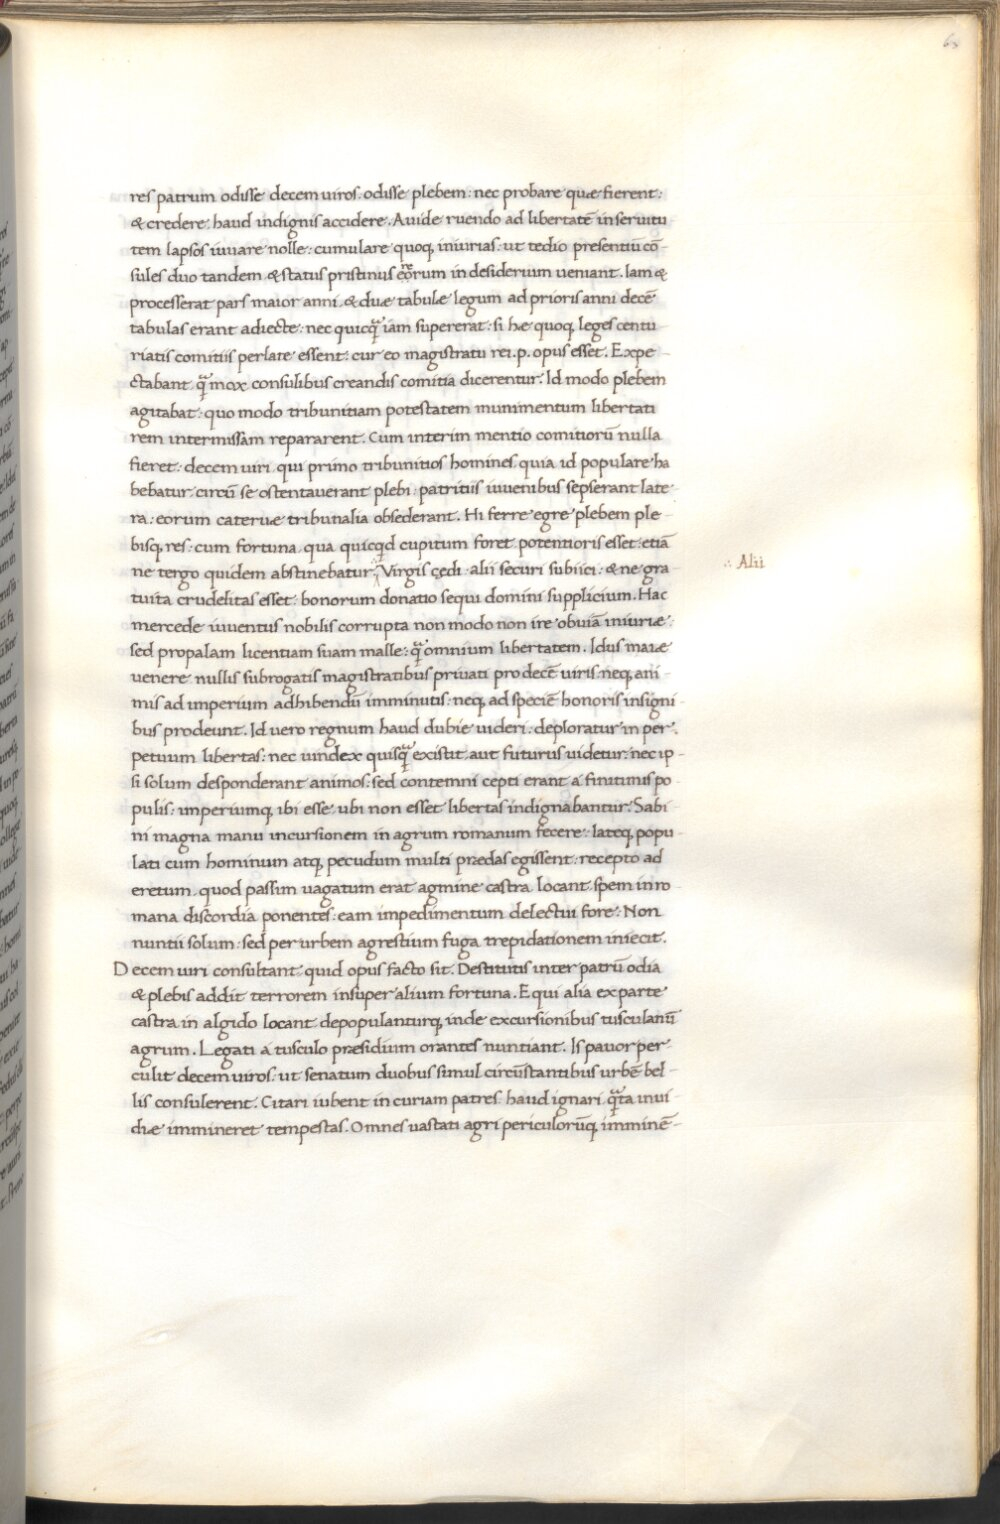 65
res patrum odisse decem uiros. odisse plebem: nec probare quæ fierent:
& credere haud indignis accidere. Auide ruendo ad libertatē in seruitu
tem lapsos iuuare nolle: cumulare quoq; iniurias: ut tedio presentiū cō-
sules duo tandem & status pristinus eorum in desiderium ueniant. Iam &
processerat pars maior anni. & duæ tabulæ legum ad prioris anni decē
tabulas erant adiectæ: nec quicq̄ iam supererat: si hæ quoq; leges centu
riatis comitiis perlatæ essent: cur eo magistratu rei. p. opus esset. Expe-
ctabant q̄ mox consulibus creandis comitia dicerentur. Id modo plebem
agitabat: quo modo tribunitiam potestatem munimentum libertati
rem intermissam repararent. Cum interim mentio comitiorū nulla
fieret: decem uiri qui primo tribunitios homines quia id populare ha
bebatur circū se ostentauerant plebi: patritiis iuuenibus sepserant late
ra: eorum cateruæ tribunalia obsederant. Hi ferre egre plebem ple
bisq; res: cum fortuna qua quicqd cupitum foret potentioris esset: etiā
ne tergo quidem abstinebatur. Virgis cędi: alii securi subiici: & ne gra
∴ Alii
tuita crudelitas esset: bonorum donatio sequi domini supplicium. Hac
mercede iuuentus nobilis corrupta non modo non ire obuiā iniuriæ:
sed propalam licentiam suam malle: q̄ omnium libertatem. Idus maiæ
uenere nullis subrogatis magistratibus priuati pro decē uiris: neq; ani
mis ad imperium adhibendū imminutis: neq; ad speciē honoris insigni
bus prodeunt. Id uero regnum haud dubie uideri: deploratur in per
petuum libertas: nec uindex quisq̄ existit aut futurus uidetur: nec ip-
si solum desponderant animos: sed contemni cepti erant a finitimis po
pulis: imperiumq; ibi esse ubi non esset libertas indignabantur. Sabi
ni magna manu incursionem in agrum romanum fecere: lateq; popu
lati cum hominum atq; pecudum multi prædas egissent: recepto ad
eretum quod passim uagatum erat agmine castra locant spem in ro
mana discordia ponentes: eam impedimentum delectui fore. Non
nuntii solum: sed per urbem agrestium fuga trepidationem iniecit.
Decem uiri consultant quid opus facto sit. Destitutis inter patrū odia
& plebis addit terrorem insuper alium fortuna. Equi alia ex parte
castra in algido locant depopulanturq; inde excursionibus tusculanū
agrum. Legati a tusculo præsidium orantes nuntiant. Is pauor per
culit decem uiros: ut senatum duobus simul circūstantibus urbē bel-
lis consulerent. Citari iubent in curiam patres haud ignari q̄ta inui
diæ immineret tempestas. Omnes uastati agri periculorūq; imminē-